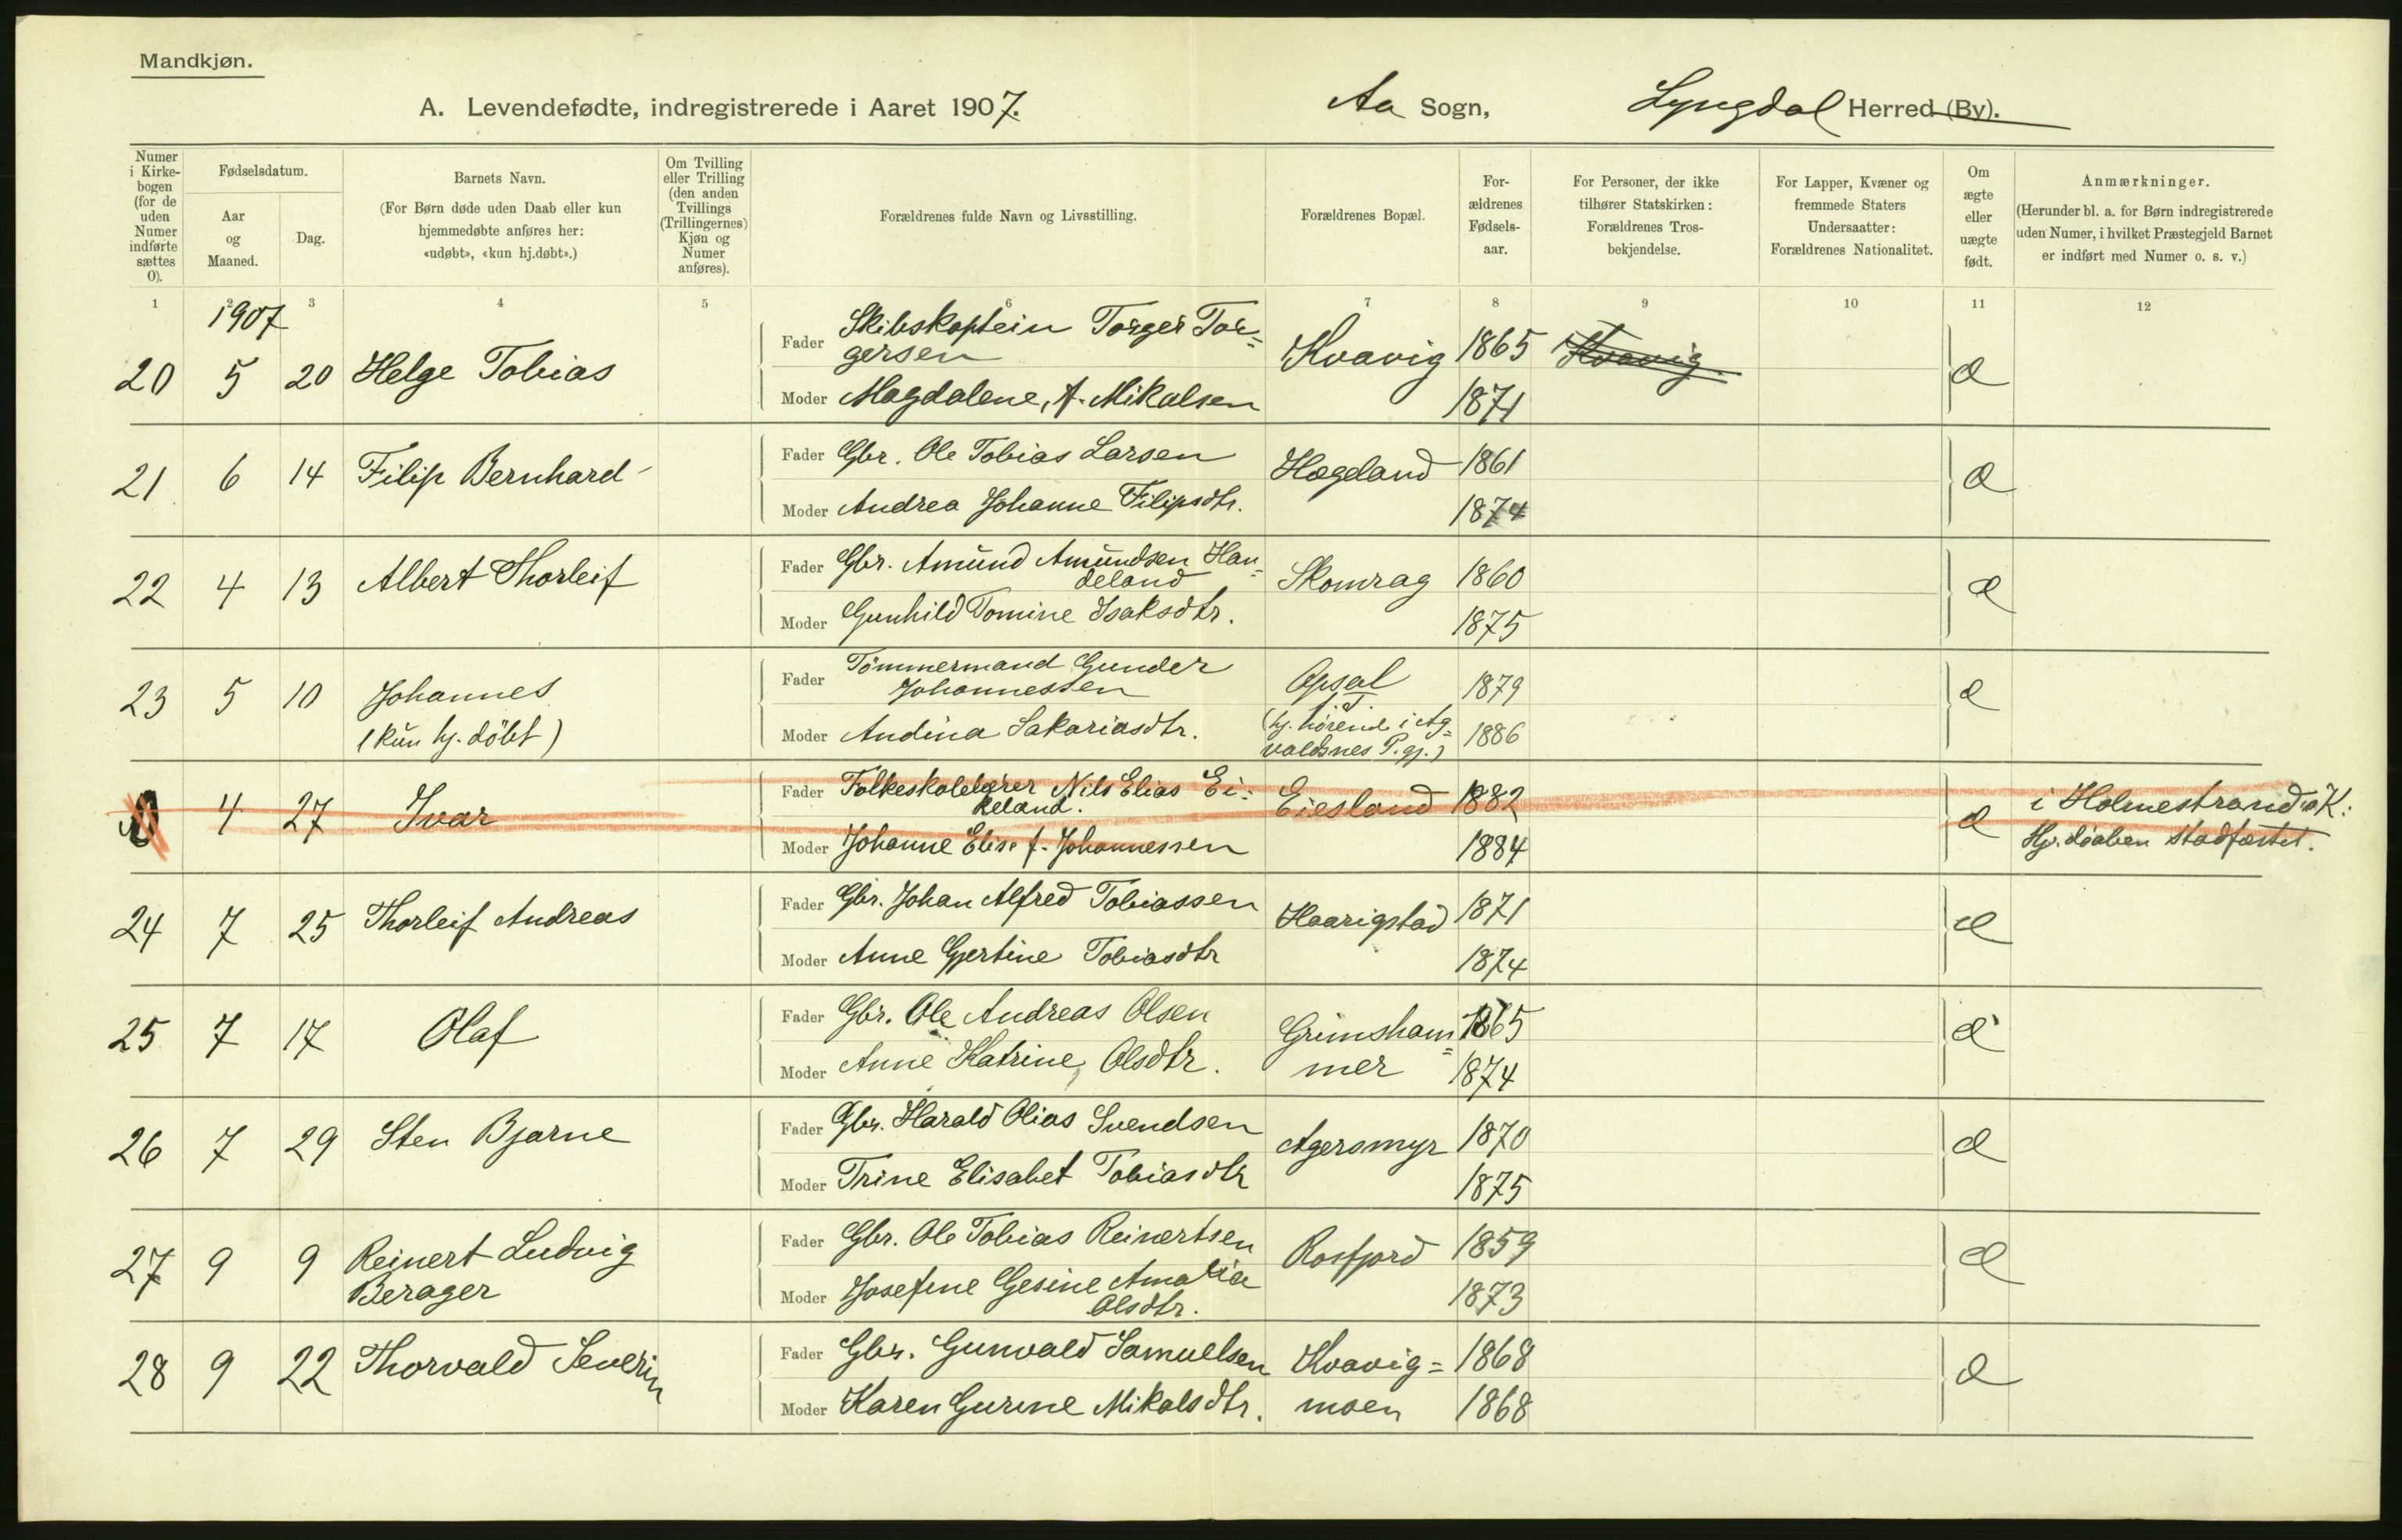 Mandkjøn.
A. Levendefødte, indregistrerede i Aaret 1907.
Aa Sogn,
Lyngdal Herred (By).
Numer i Kirkebogen (for de uden Numer indførte sættes 0).
Fødselsdatum.
Aar og Maaned.
Dag.
Barnets Navn.
(For Børn døde uden Daab eller kun hjemmedøbte anføres her: «udøbt», «kun hj.døbt».)
Om Tvilling eller Trilling (den anden Tvillings (Trillingernes) Kjøn og Numer anføres).
Forældrenes fulde Navn og Livsstilling.
Forældrenes Bopæl.
For-ældrenes Fødsels-aar.
For Personer, der ikke tilhører Statskirken: Forældrenes Tros-bekjendelse.
For Lapper, Kvæner og fremmede Staters Undersaatter: Forældrenes Nationalitet.
Om ægte eller uægte født.
Anmærkninger.
(Herunder bl. a. for Børn indregistrerede uden Numer, i hvilket Præstegjeld Barnet er indført med Numer o. s. v.)
1 2 3 4 5 6 7 8 9 10 11 12
1907
20 5 20 Helge Tobias
Fader Skibskaptein Torger Tor=
gersen
Kvavig 1865 Kvavig æ
Moder Magdalene, f. Mikalsen 1871
21 6 14 Filip Bernhard
Fader Gbr. Ole Tobias Larsen Hægeland 1861 æ
Moder Andrea Johanne Filipsdtr. 1874
22 4 13 Albert Thorleif
Fader Gbr. Amund Amundsen Han=
deland
Skomrag 1860 æ
Moder Gunhild Tomine Isaksdtr. 1875
23 5 10 Johannes
(kun hj. döbt)
Fader Tömmermand Gunder
Johannessen
Opsal 1879 æ
Moder Andina Sakariasdtr.
(hj. hörende i Ag=
valdsnes P.gj.)
1886
0 4 27 Ivar
Fader Folkeskolelærer Nils Elias Ei=
keland.
Eiesland 1882 æ
Moder Johanne Elise f. Johannessen 1884
i Holmestrands K.
Hj.daaben stadfæstet.
24 7 25 Thorleif Andreas
Fader Gbr. Johan Alfred Tobiassen Haarigstad 1871 æ
Moder Anne Gjertine Tobiasdtr 1874
25 7 17 Olaf
Fader Gbr. Ole Andreas Olsen Grimsham= 1865 æ
Moder Anne Katrine Olsdtr. mer 1874
26 7 29 Sten Bjarne
Fader Gbr. Harald Olias Svendsen Agersmyr 1870 æ
Moder Trine Elisabet Tobiasdtr 1875
27 9 9 Reinert Ludvig
Berager
Fader Gbr. Ole Tobias Reinertsen Rosfjord 1859 æ
Moder Josefine Gesine Amalia
Olsdtr.
1873
28 9 22 Thorvald Severin
Fader Gbr. Gunvald Samuelsen Kvavig= 1868 æ
Moder Karen Gurine Mikalsdtr. moen 1868